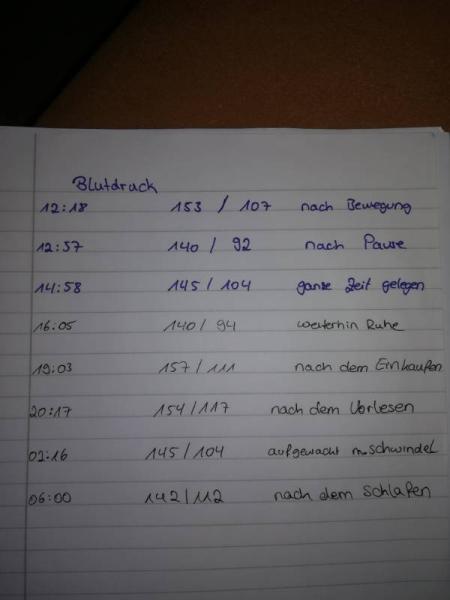 Blutdruck
12:18 153 / 107 nach Bewegung
12:57 140 / 92 nach Pause
14:58 145 / 104 ganze Zeit gelegen
16:05 140 / 94 weiterhin Ruhe
19:03 157 / 111 nach dem Einkaufen
20:17 154 / 117 nach dem Vorlesen
02:16 145 / 104 aufgewacht m. Schwindel
06:00 142 / 112 nach dem Schlafen